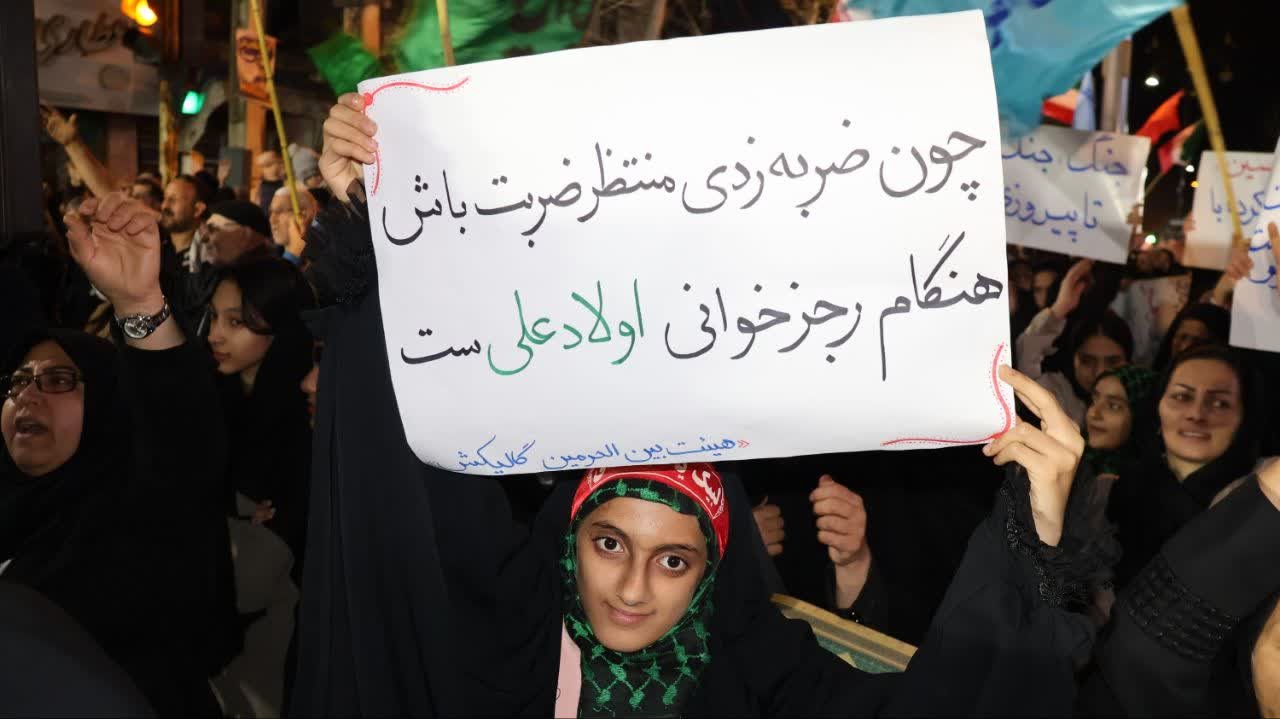 چون ضربه زدی منتظر ضربت باش
هنگام رجز خوانی اولاد علی ست
هیئت بین الحرمین گالیکش
جنگ جنگ
تا پیروزی
لبیک